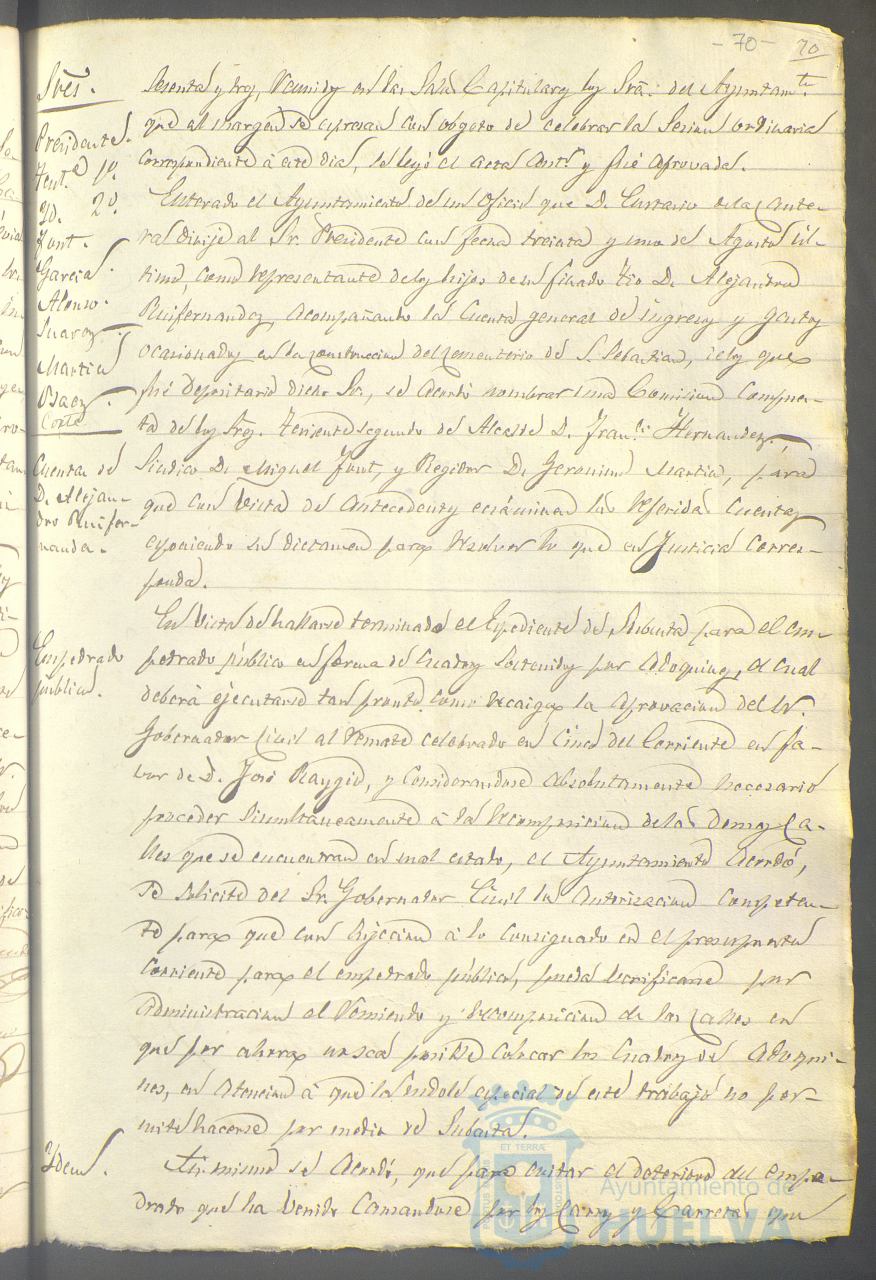 - 70 - 70
Sres.
Presidente.
Tente. 1º.
Yd. 2º.
Font.
Garcia.
Alonso.
Suarez.
Martin
Baez.
Corte
sesenta y tres, reunidos en las Salas Capitulares los Sres. del Ayuntamto.
que al margen se espresan con objeto de celebrar la Sesion ordinaria
correspondiente á este dia, se leyó el acta antr. y fué aprovada.
Cuenta de
D. Alejan-
dro Ruifer-
nandez.
Enterado el Ayuntamiento de un Oficio que D. Eustacio de la Cante-
ra dirije al Sr. Presidente con fecha treinta y uno de Agosto úl-
timo, como representante de los hijos de su finado tio D. Alejandro
Ruifernandez, acompañando la Cuenta general de ingresos y gastos
ocasionados en la construccion del cementerio de S. Sebastian, de los que
fué Depositario dicho Sor., se acordó nombrar una Comision compues-
ta de los Sres. Teniente segundo de Alcalde D. Franco. Hernandez,
Sindico D. Miguel Font, y Regidor D. Geronimo Martin, para
que con vista de antecedentes ecsaminen la referida Cuenta,
esponiendo su dictamen para resolver lo que en Justicia corres-
ponda.
Empedrado
público.
En vista de hallarse terminado el Espediente de Subasta para el em-
pedrado público en forma de cuadros sostenidos por adoquines, el cual
deberá ejecutarse tan pronto como recaiga la aprovacion del Sr.
Gobernador Civil al remate celebrado en cinco del corriente en fa-
vor de D. José Raygio, y considerandose absolutamente necesario
proceder simultaneamente á la recomposicion de las demas Ca-
lles que se encuentran en mal estado, el Ayuntamiento acordó,
se solicite del Sr. Gobernador Civil la autorizacion competen-
te para que con sujecion á lo consignado en el presupuesto
corriente para el empedrado público, pueda verificarse por
administracion el remiendo y recomposicion de las Calles en
que por ahora no sea posible colocar los Cuadros de adoqui-
nes, en atencion á que la índole especial de este trabajo no per-
mite hacerse por medio de Subasta.
Ydem.
Asi mismo se acordó, que para evitar el deterioro del empe-
drado que ha venido causandose por los Carros y Carretas que
ET TERRAE
Ayuntamiento de
HUELVA